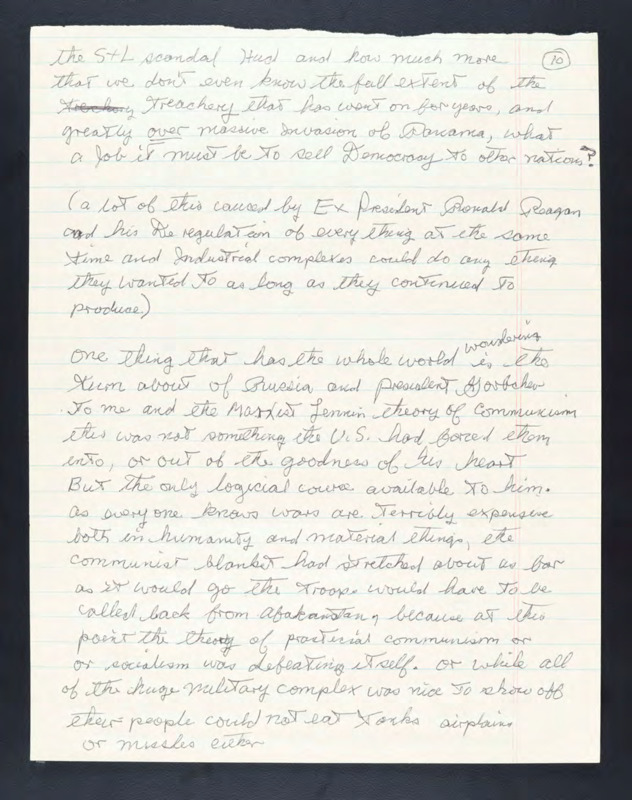 the S+L scandal Hud and how much more
10
that we don't even know the full extent of the
Treachery Treachery that has went on for years, and
greatly over massive Invasion of Panama, what
a Job it must be to sell Democrosy to other nations?
(a lot of this caused by Ex President Ronald Reagan
and his De regulation of every thing at the same
time and Industrial complexes could do any thing
they wanted to as long as they continued to
produce)
wondering
One thing that has the whole world is the
turn about of Russia and President Gorbchev
To me and the Marxist Lennin theory of Communism
this was not something the U.S. had forced them
into, or out of the goodness of his heart
But the only logicial course available to him.
as every one knows wars are Terribly expensive
both in humanity and material things, the
communist blanket had stretched about as far
as it would go the troops would have to be
called back from Afakanstan, because at this
point the theory of practicial communism or
or socialism was defeating itself. or while all
of the huge military complex was nice to show off
their people could not eat Tanks airplains
or missles either